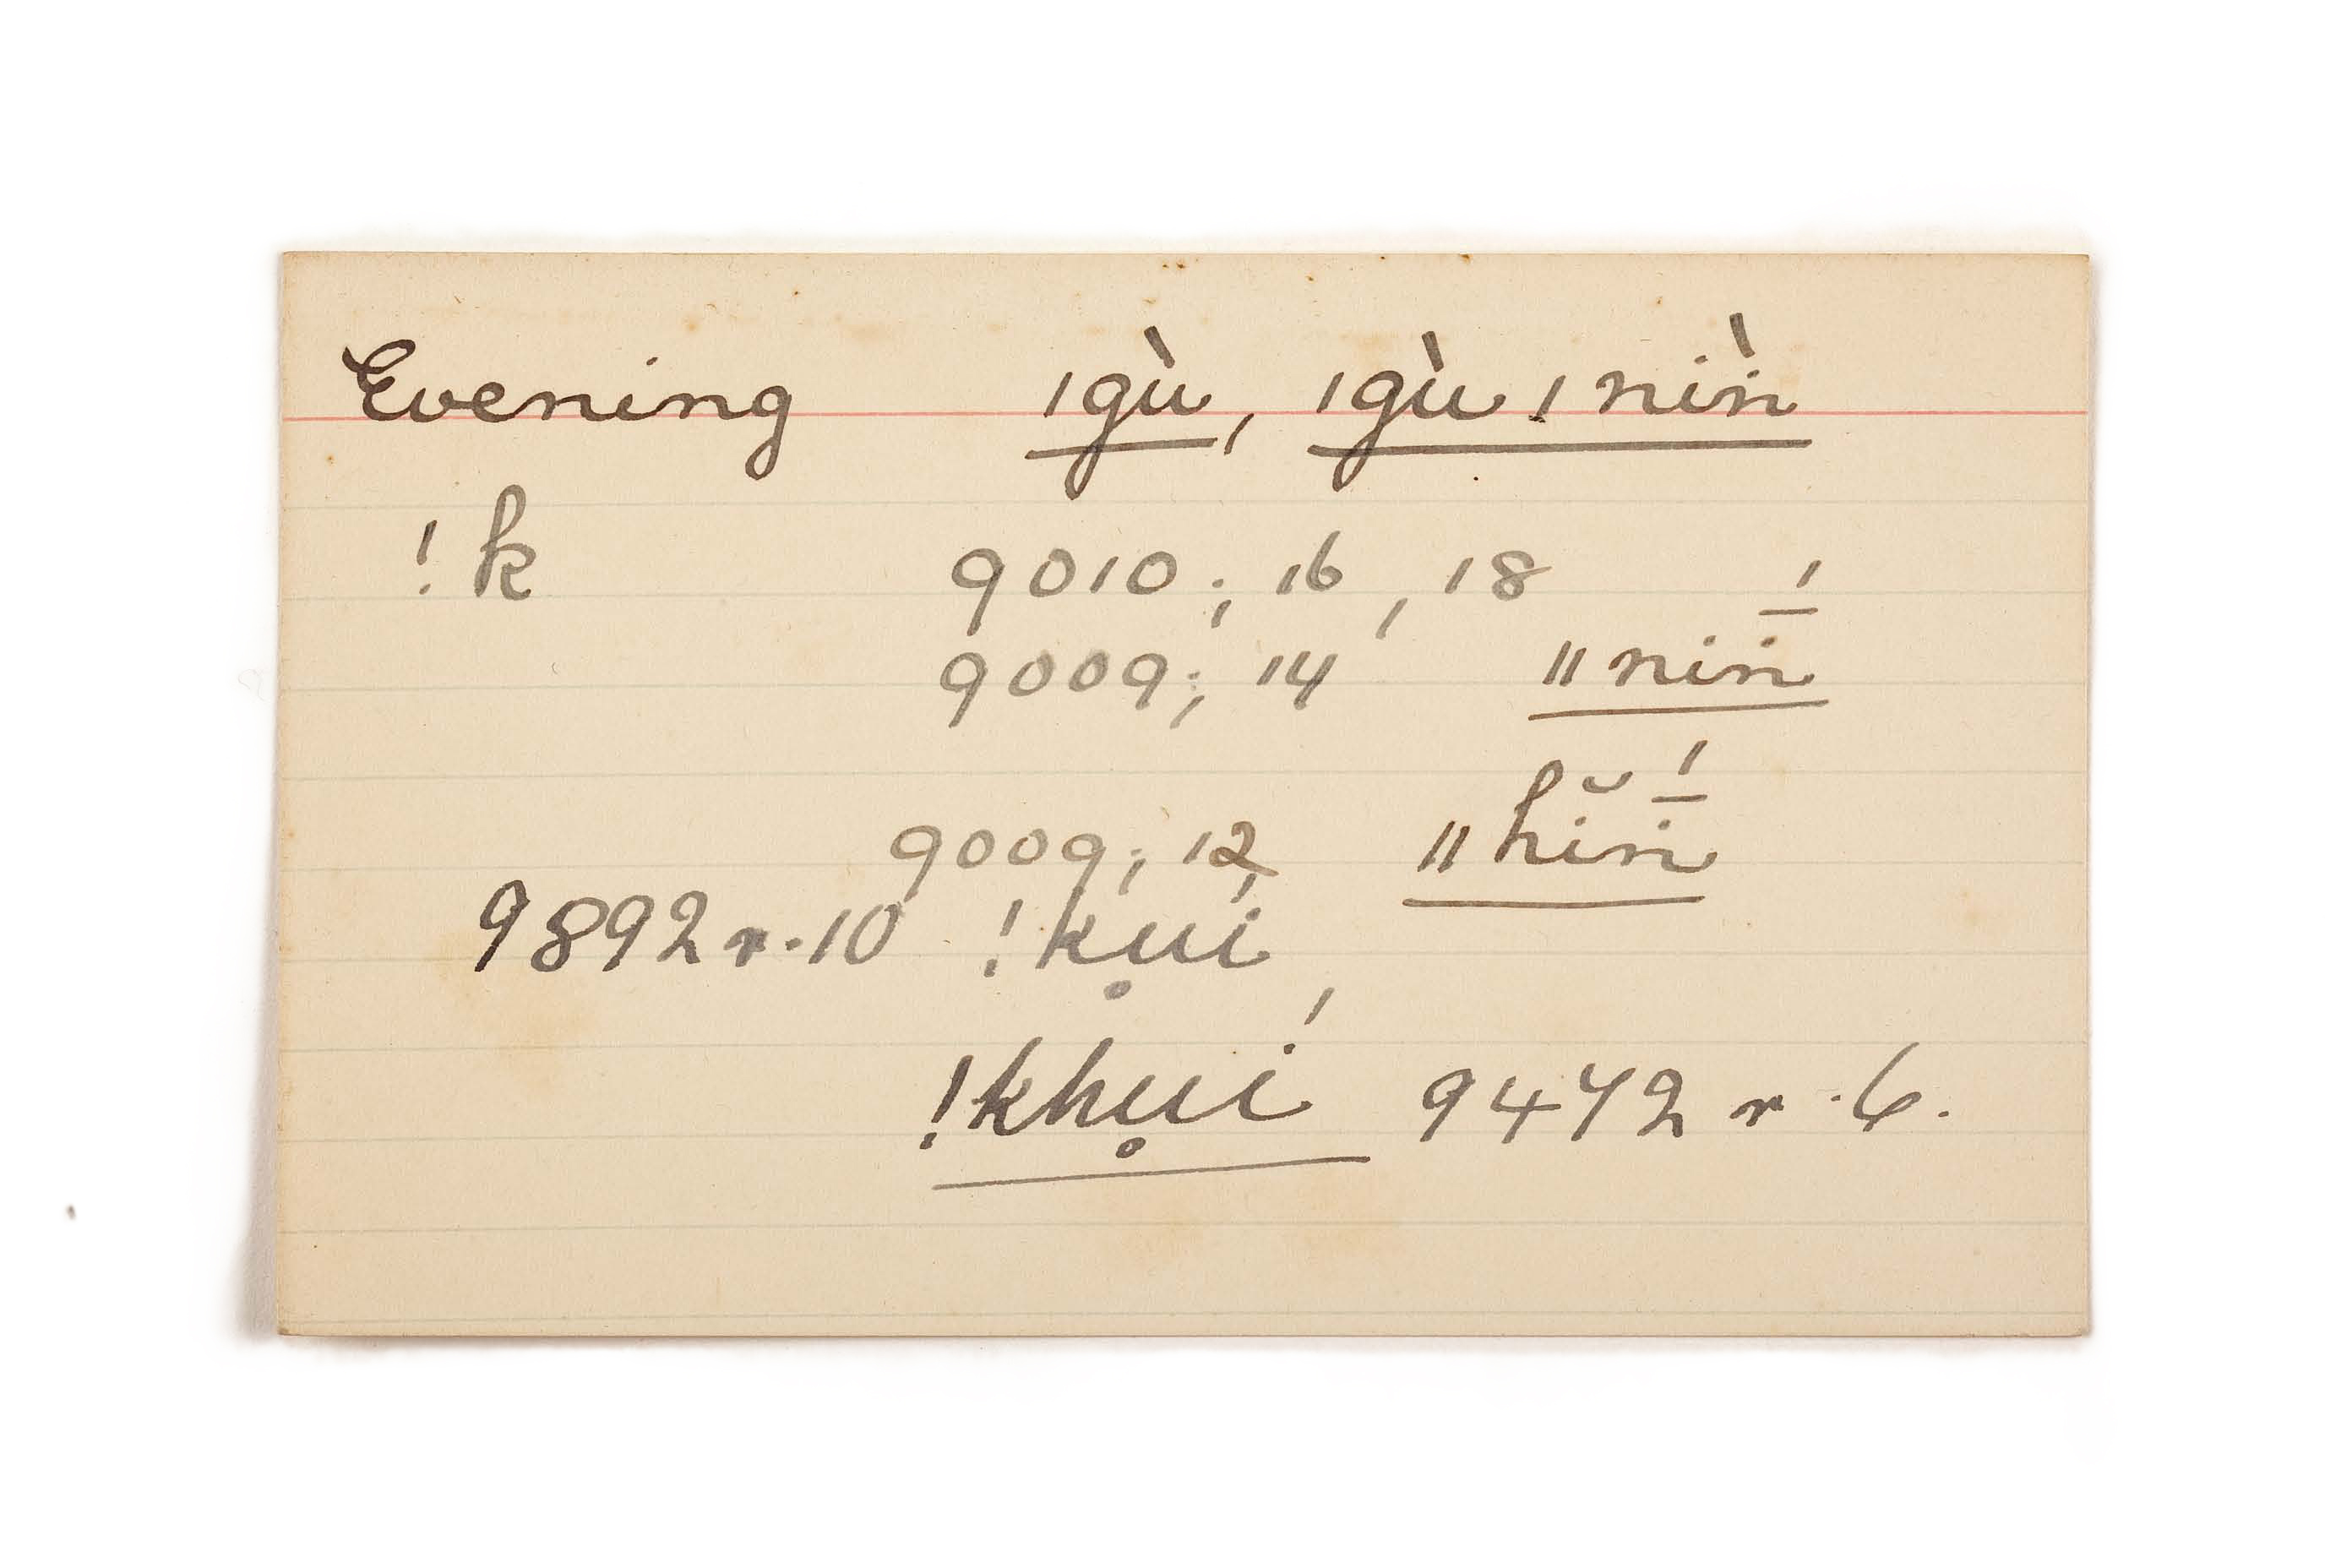 Evening ǀgù, ǀgù ǀniǹ̇
!k 9010; 16, 18
9009; 14 ǁniṉ̇́
9009; 12 ǁhĭṉ̇́
9892 r. 10 !kụí,
!khụí 9472 r. 6.